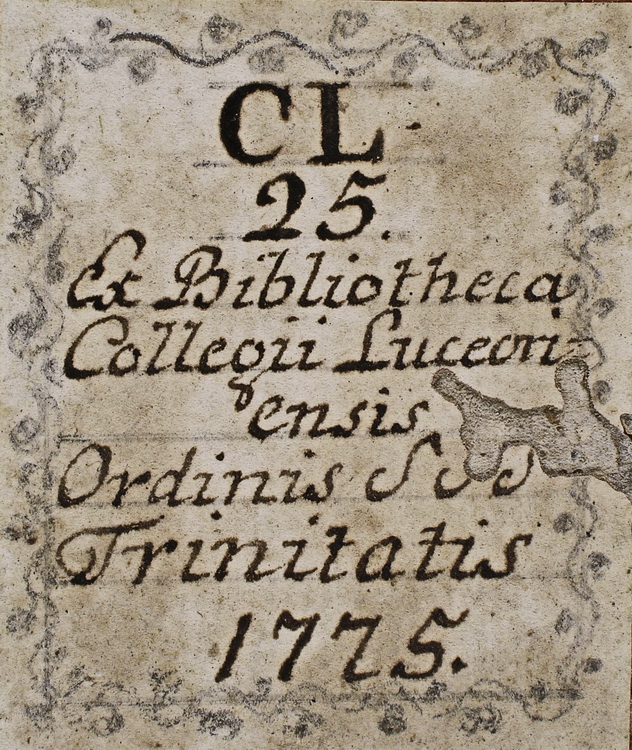 CL
25.
Ex Bibliotheca
Collegii Luceori-
ensis
Ordinis
Trinitatis
1775.